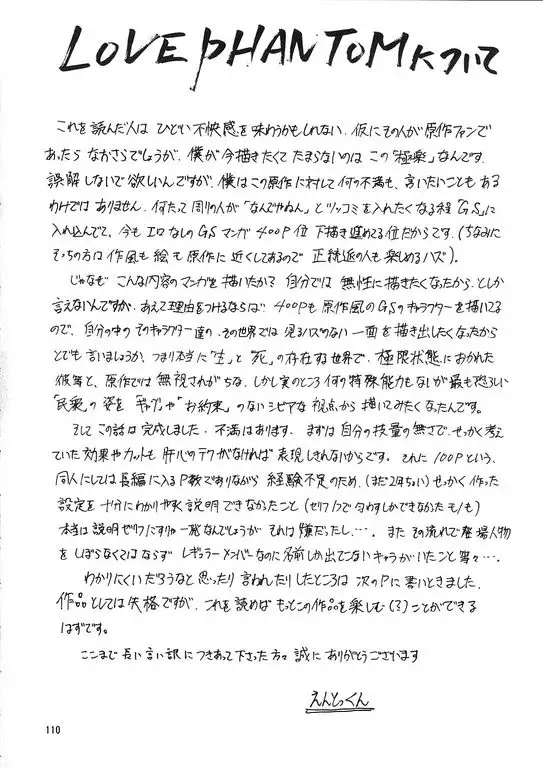 LOVE PHANTOMについて
これを読んだ人は ひどい不快感を味わうかもしれない. 仮にその人が原作ファンで
あったら なおさらでしょうが. 僕が今描きたくて たまらないのは この「極楽」なんです.
誤解しないで欲しいんですが. 僕はこの原作に対して何の不満も、言いたいことも ある
わけでは ありません. 何たって 周りの人が「なんでやねん」とツッコミを入れたくなる程「GS」に
入れ込んでて、今も エロなしのGSマンガ 400P位 下描き進めてる位だからです. (ちなみに
そっちの方は作風も絵も原作に近くしてあるので 正統派の人も楽しめるハズ).
じゃなぜ こんな内容のマンガを描いたか? 自分では 無性に描きたくなったから. としか
言えないんですが. あえて理由をつけるならば 400Pも 原作風のGSのキャラクターを描いてる
ので、自分の中の そのキャラクター達の、その世界では 見るハズのない 一面を描き出したくなったから
とでも言いましょうか. つまり本当に「生」と「死」の存在する世界で、極限状態におかれた
彼等と、原作では無視されがちな. しかし実のところ 何の特殊能力もないが最も恐ろしい
「民衆」の姿を 「ギャグ」や「お約束」のないシビアな視点から 描いてみたくなったんです。
そして この話は完成しました. 不満はあります. まずは自分の技量の無さで、せっかく考え
ていた効果やカットも 肝心のテクがなければ 表現しきれないからです. それに 100Pという、
同人にしては長編に入るP数でありながら 経験不足のため、(まだ2年ちょい) せっかく作った
設定を 十分にわかりやすく説明できなかったこと (セリフで匂わすしかできなかったモノも)
本当は説明ゼリフにすりゃ一発なんでしょうが それは嫌だったし…. また その流れで登場人物
を しぼらなくてはならず レギュラーメンバーなのに名前しか出てこないキャラがいたこと等々….
わかりにくいだろうなと思ったり 言われたりしたところは 次のPに書いときました.
作品としては失格ですが、これを読めば もっとこの作品を楽しむ(?)ことができる
はずです。
ここまで 長い言い訳に つきあって下さった方々 誠に ありがとうございます
えんとっくん
110